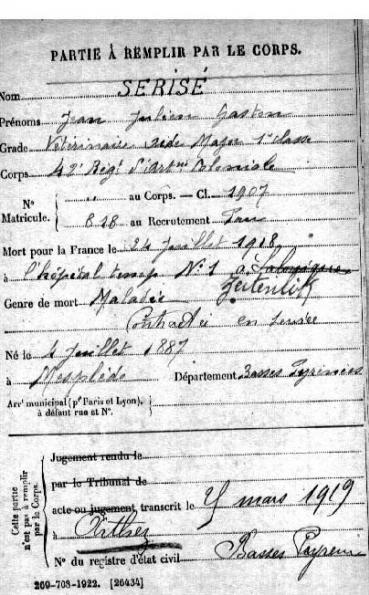 PARTIE À REMPLIR PAR LE CORPS.
Nom SERISÉ
Prénoms Jean Julien Gaston
Grade Vétérinaire aide Major 1e classe
Corps 42e Regt d'Artrie Coloniale
N° Matricule. { " au Corps. — Cl. 1907
818 au Recrutement Pau
Mort pour la France le 24 juillet 1918
à l'hôpital temp N° 1 à Salonique Zeitenlik
Genre de mort Maladie
Contractée en service
Né le 4 juillet 1887
à Mesplède Département Basses Pyrénées
Arrt municipal (pr Paris et Lyon), à défaut rue et N°.
Cette partie n'est pas à remplir par le Corps.
Jugement rendu le
par le Tribunal de
acte ou jugement, transcrit le 25 mars 1919
à Arthez
Basses Pyrénées
N° du registre d'état civil
269-708-1922. [26434]